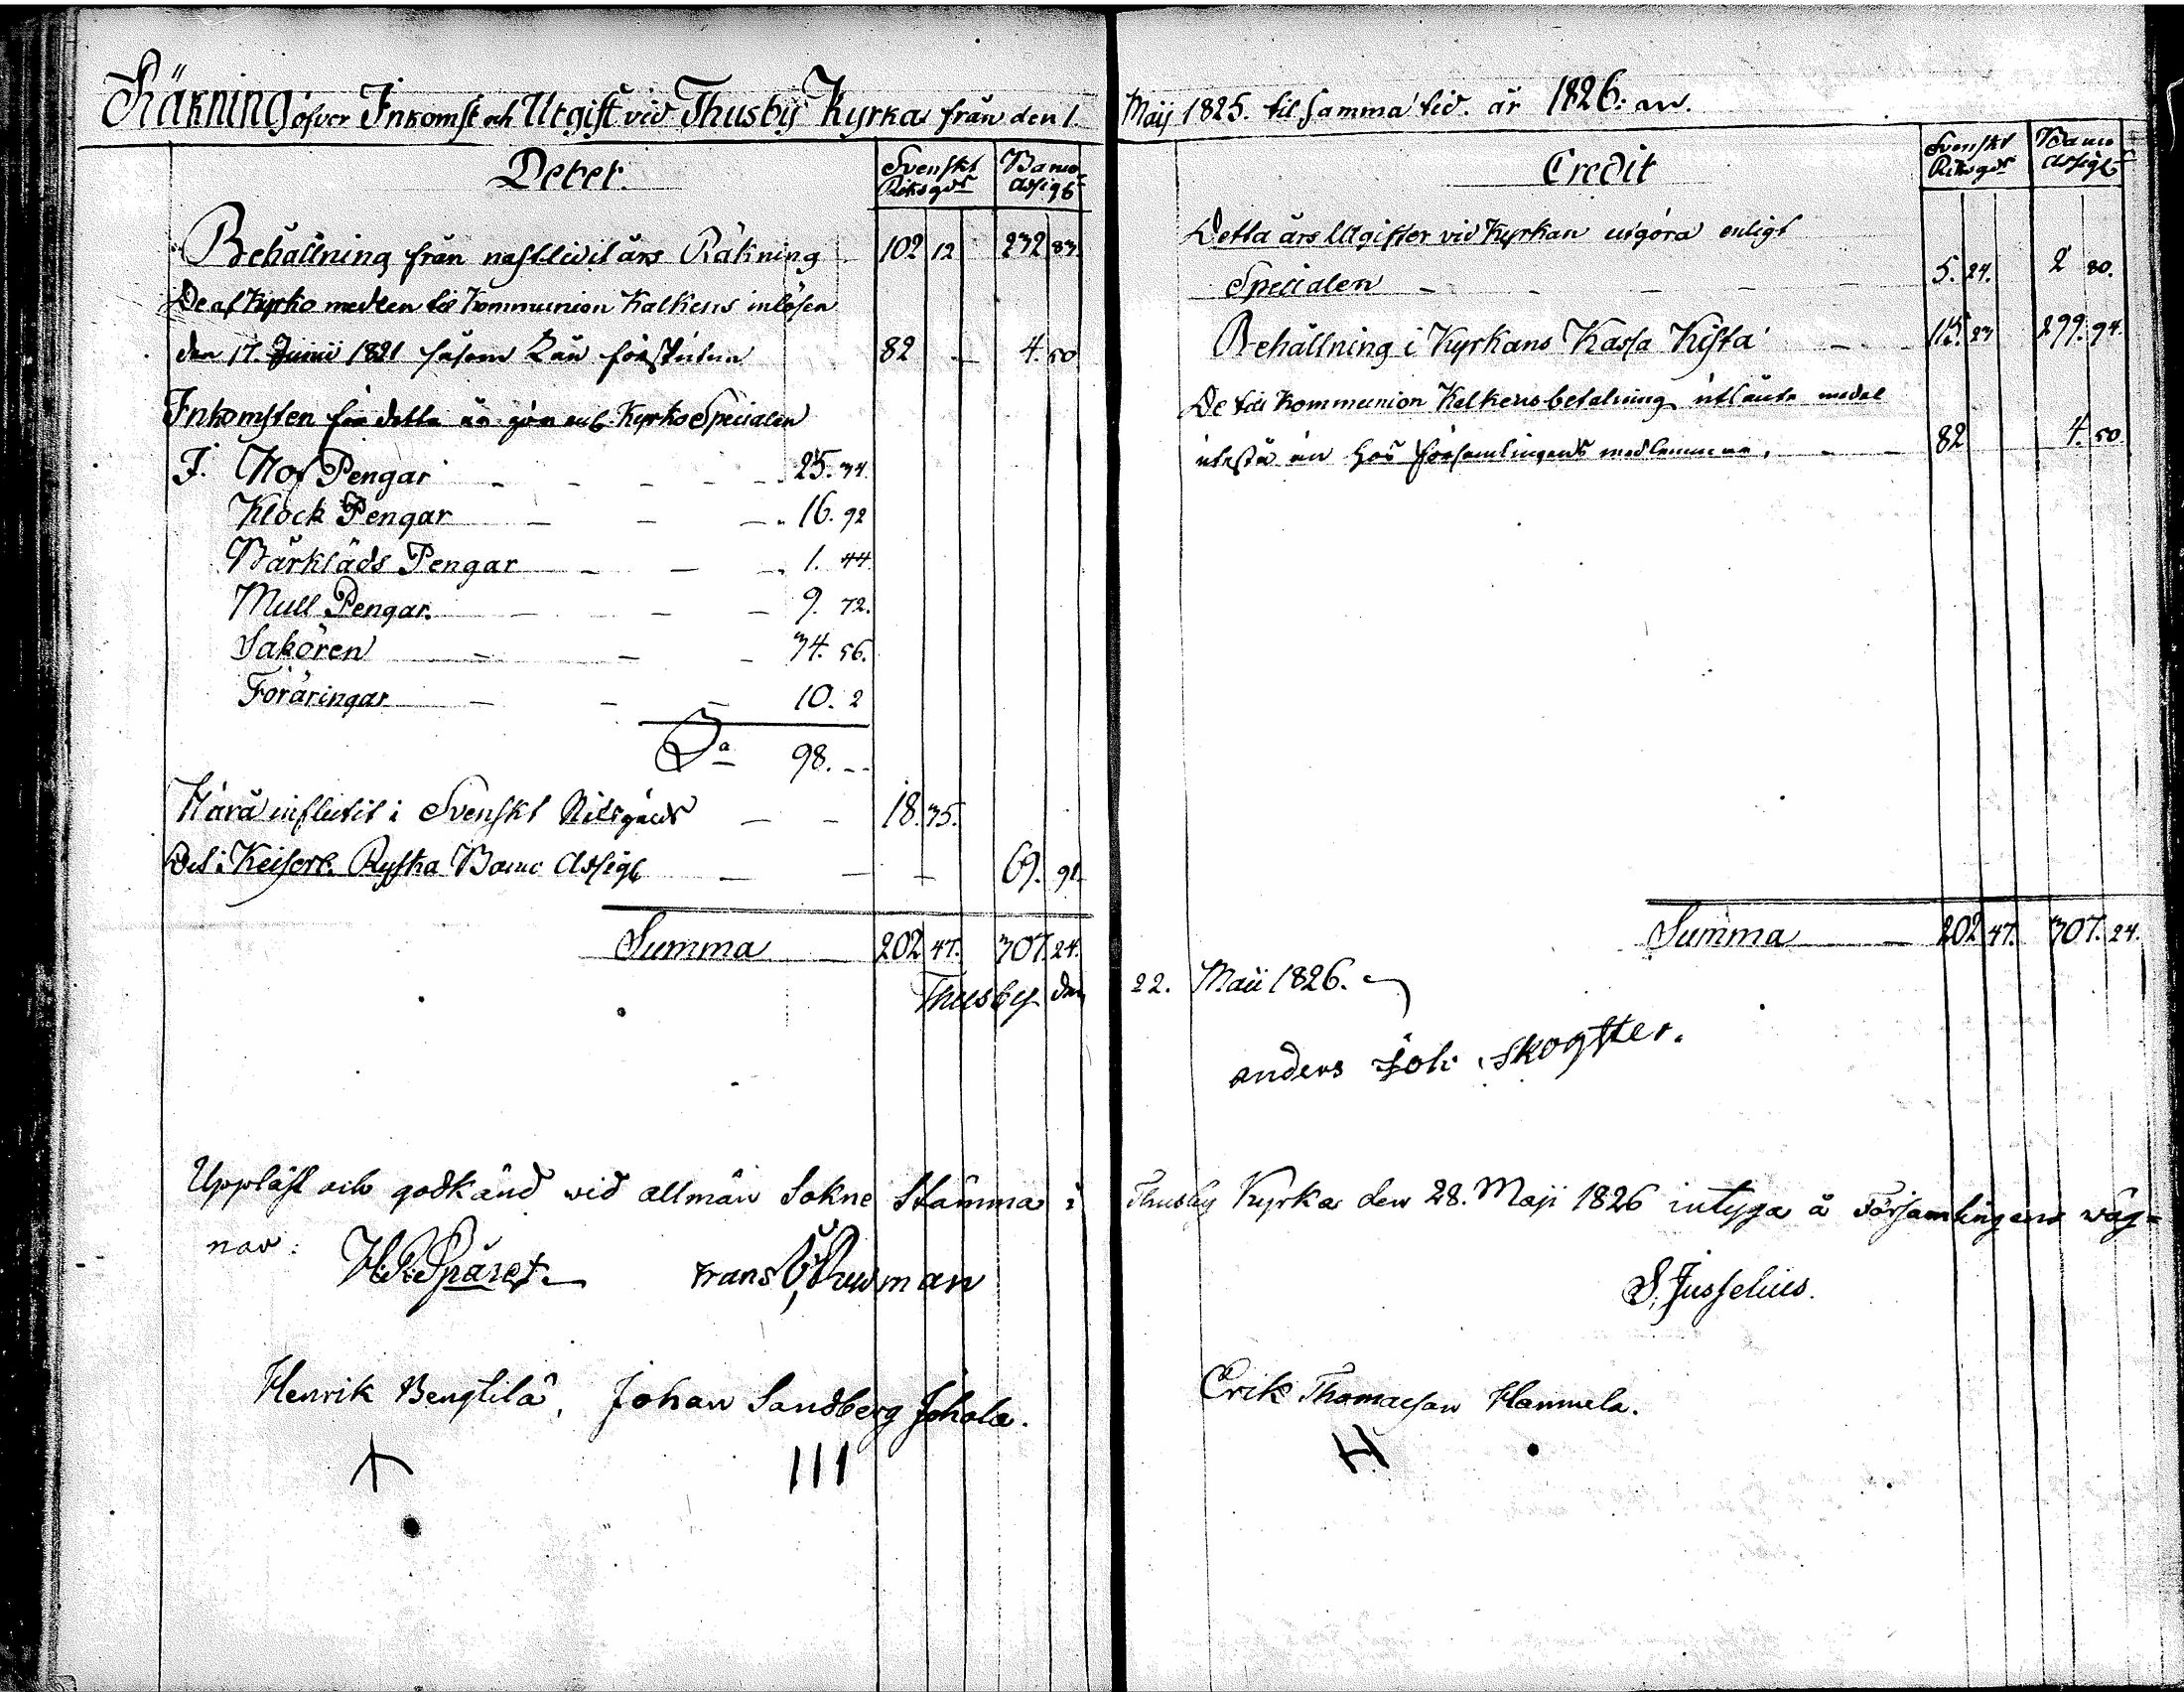 Räkning öfver Inkomst och Utgift vid Thusby Kyrka från den 1.
Debet. Svenskt Riksgds Banco Assigt
Behållning från nästledit års Räkning 102 12 232 83.
De af Kyrko medlen til Kommunion Kalkens inlösen
den 17. Junii 1821 såsom Lån försträkta 82 4. 50
Inkomsten för detta år gör enl. Kyrko Specialen
I. Hof Pengar 25. 34.
Klock Pengar 16. 92
Bårkläds Pengar 1. 44
Mull Pengar. 9. 72.
Sakören 34. 56.
Föräringar 10. 2
Sa 98. --
Härå influtit i Svenskt Riksgäds 18. 35.
Dit i Keiserl. Ryska Banco Assigt 69. 91.
Summa 202 47. 307. 24.
Thusby den
Uppläst och godkänd wid allmän Sokne Stämma i
nar:
Henrik Bengtilä, Johan Sandberg Johola.
III
Maij 1825. til samma tid. år 1826.
Credit Svenskt Riksgds Banco Assigt
Detta års Utgifter vid Kyrkan utgöra enligt
Specialen 5. 24. 2 80.
Behållning i Kyrkans Kassa Kista 115. 23 299. 94.
De til Kommunion Kalkens betalning utlånta medel
utestå än hos församlingens medlemmar. 82 4. 50.
Summa 202 47. 307. 24.
22. Maii 1826.
anders Joh: Skogster.
Thusby Kyrka den 28. Maji 1826 intyga å Församlingens wäg-
S. Jusselius.
Erik Thomasson Hannula.
H